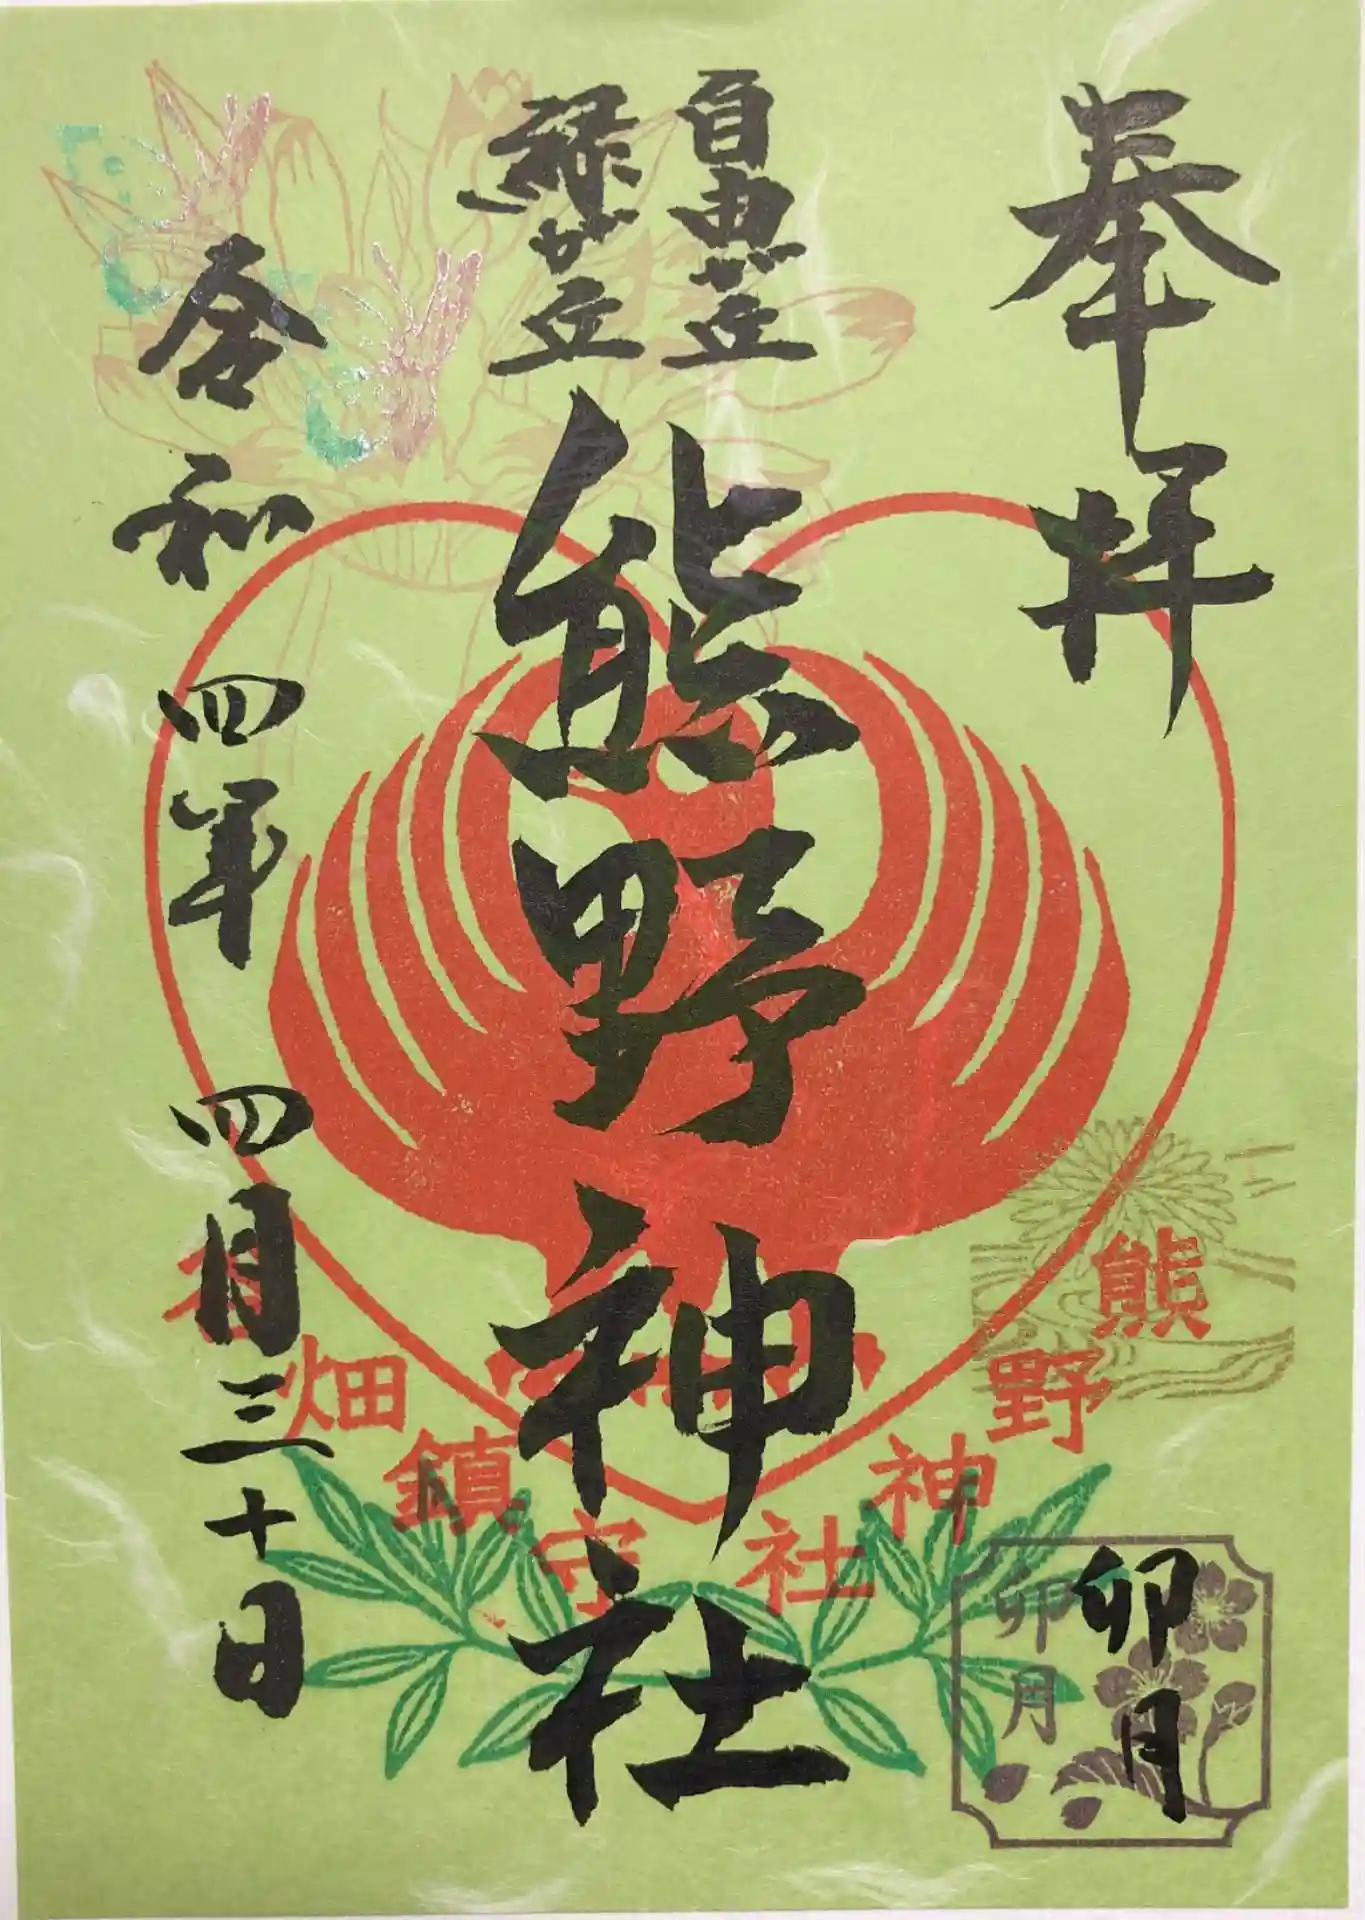 奉拝
卯月
自由が丘
緑が丘
熊野神社
令和四年四月三十日
熊野神社
畑鎮守
卯月